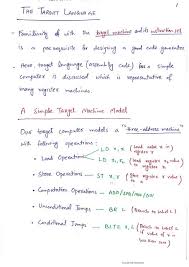 THE TARGET LANGUAGE
• Familiarity of with the target machine and its instruction set
is a prerequisite for designing a good code generator
• Here target language (assembly code) for a simple
computer is discussed which is representative of
many register machines.
A Simple Target Machine Model
Our target computer models a "three-address machine"
with following operations:
• Load Operations LD r, x
LD r1, r2
• Store Operations ST x, r
• Computation Operations - ADD/SUB/MUL/DIV
• Unconditional Jumps - BR L (Branch to Label L)
• Conditional Jumps - BLTZ r, L (Branch to Label L
if value of r is
less than zero)